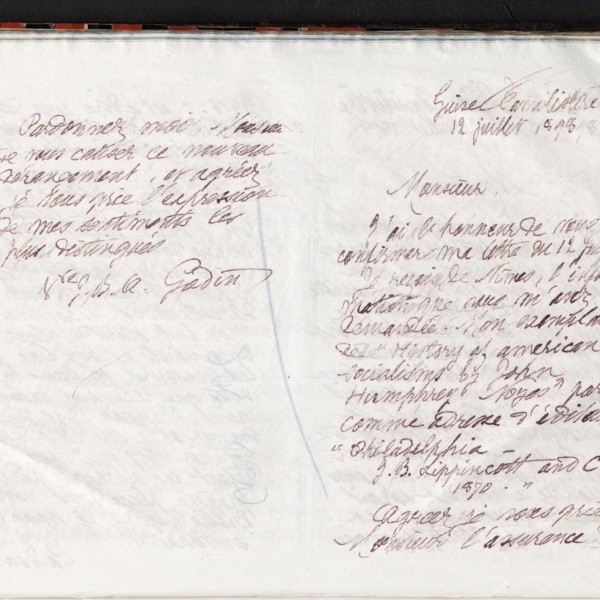 Pardonnez moi, Monsieur
de vous causer ce nouveau
dérangement, et agréez
je vous prie l'expression
de mes sentiments les
plus distingués
Vve J. B. A. Godin
Guise Familistère
12 juillet 1898
Monsieur
J'ai l'honneur de vous
confirmer ma lettre du 12
Je reçois de Nîmes, l'infor
mation que vous m'avez
demandée. Mon exemplai
de "History of american
socialisms by John
Humphrey Noyes" por
comme adresse d'édite
"Philadelphia –
J. B. Lippincott and C
1870. "
Agréez je vous prie
Monsieur l'assurance